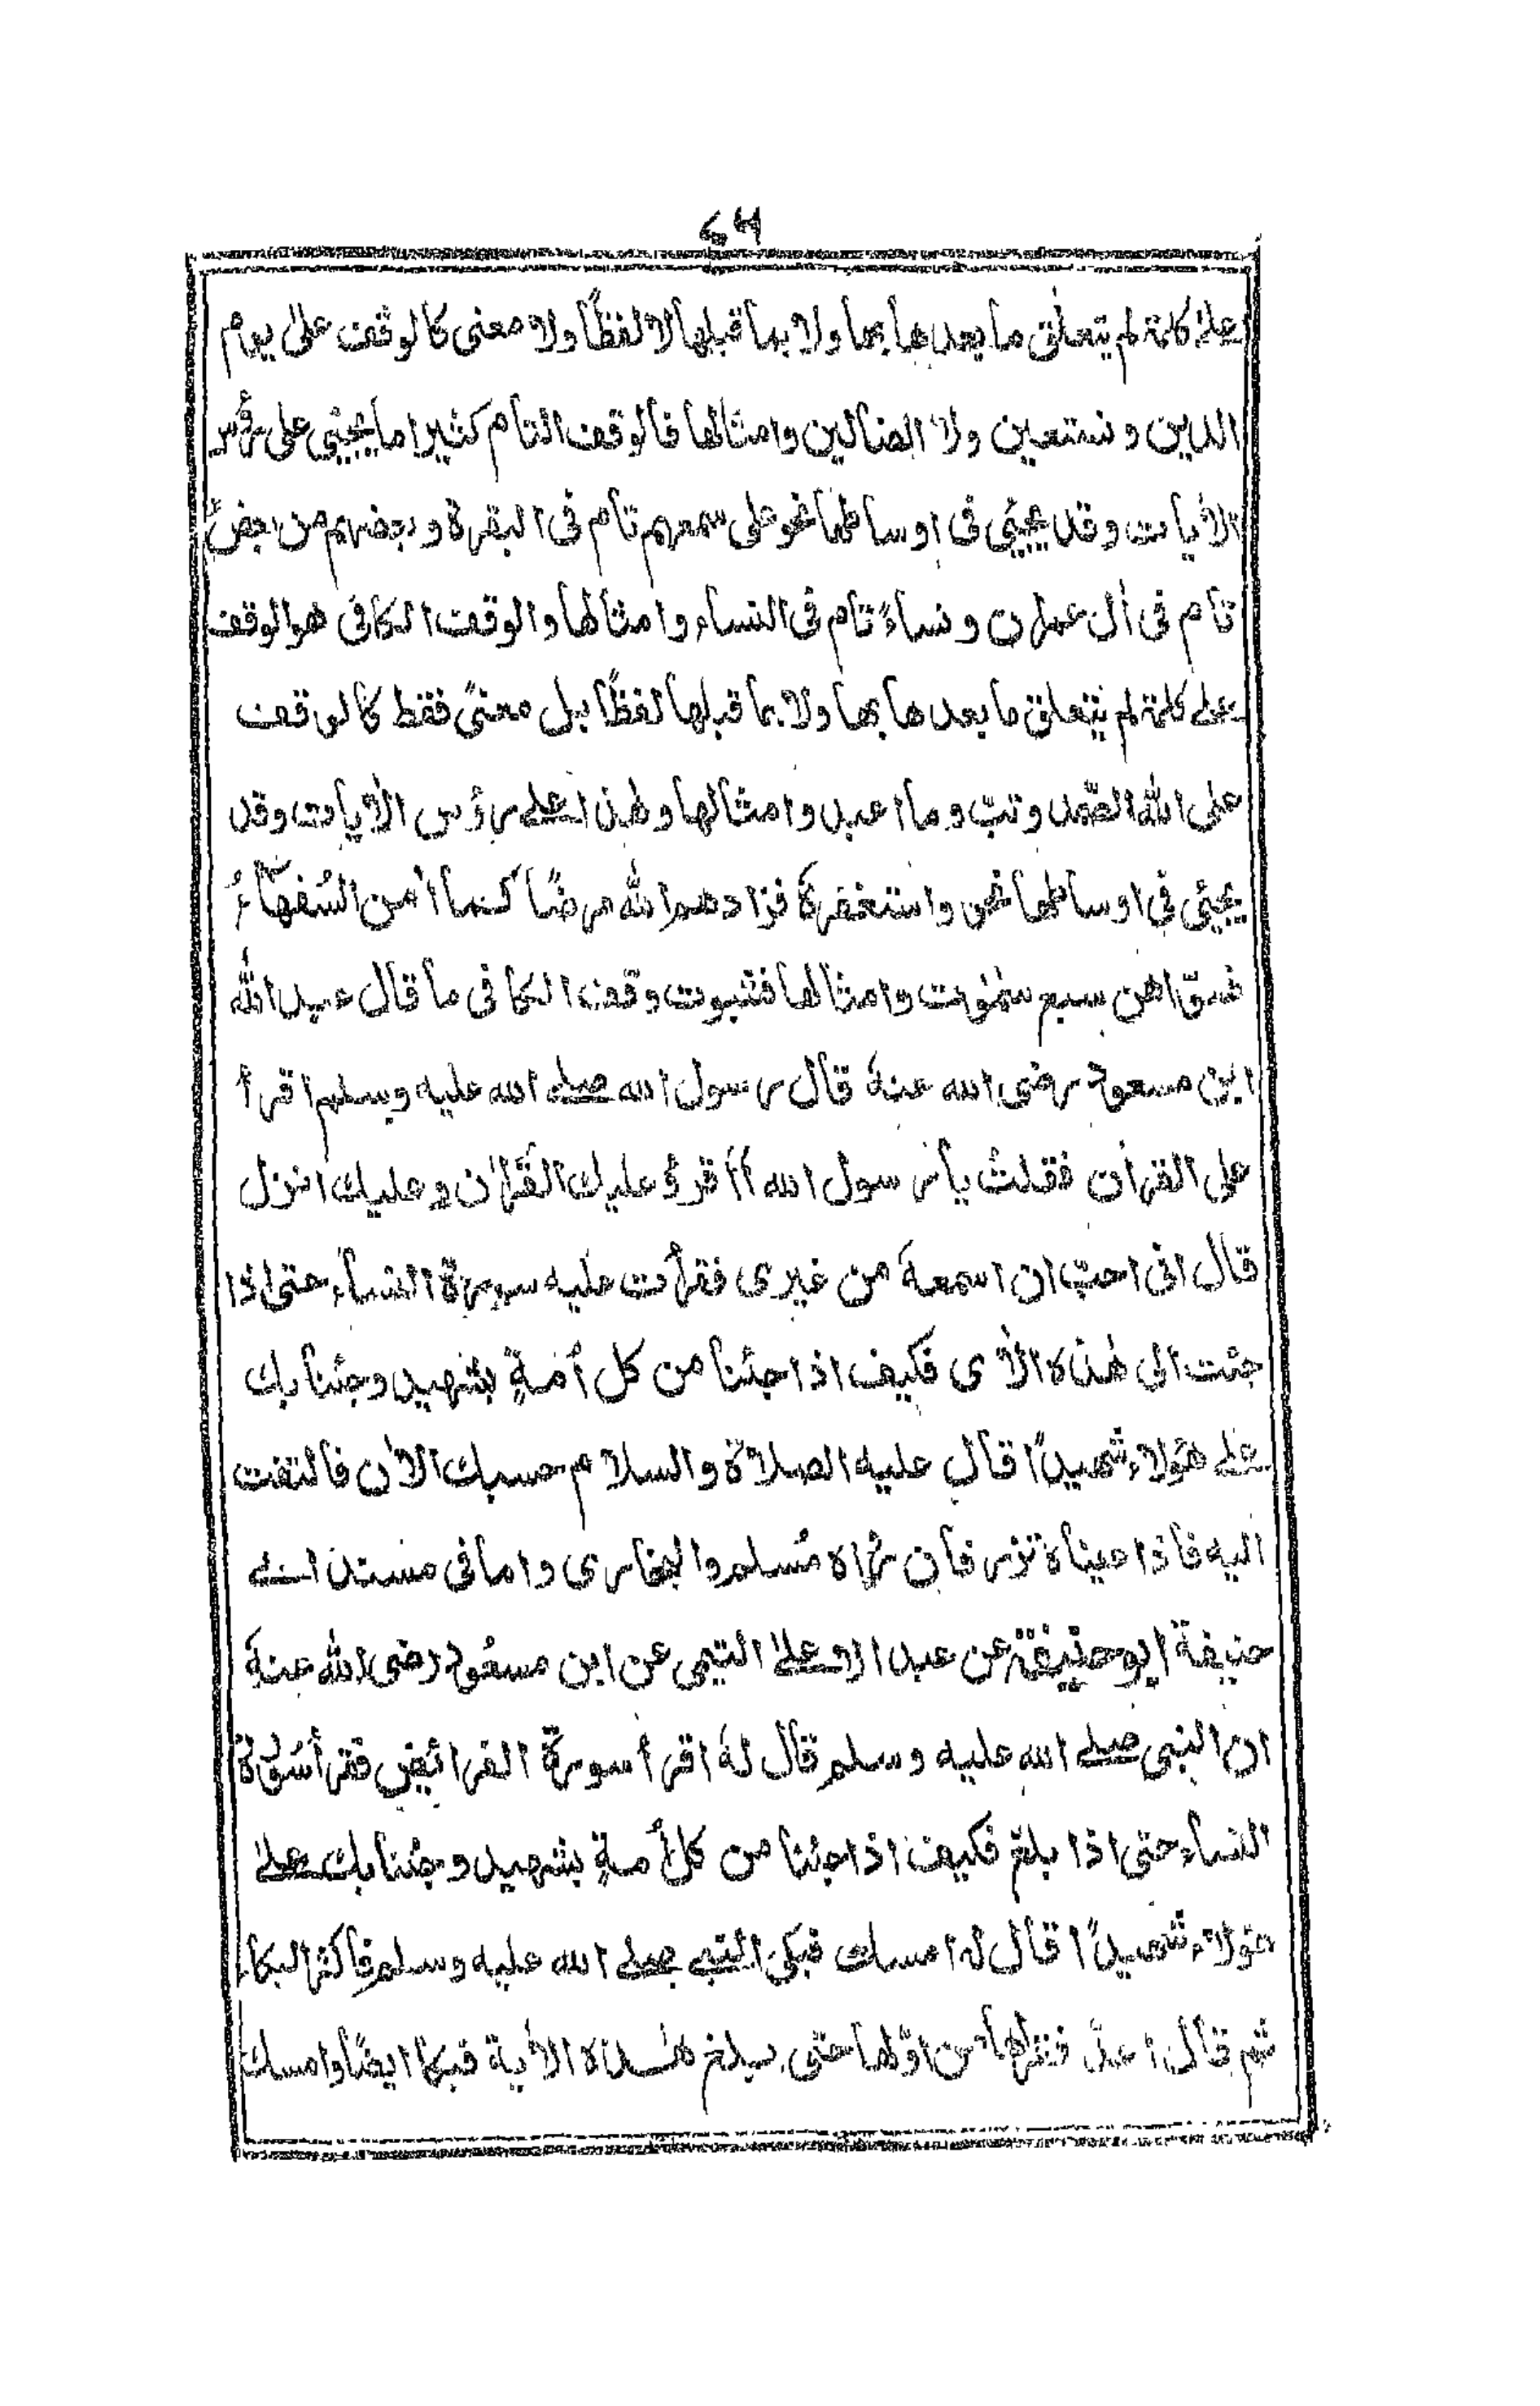 ٦٩
على كلمة لم يتعلق ما بعدها بها ولا بما قبلها لا لفظًا ولا معنى كالوقف على يوم
الدين ونستعين ولا الضالين وامثالها فالوقف التام كثيرا ما يجيئ على رؤس
الأيات وقد يجيئ فى اوساطها نحو على سمعهم تام فى البقرة و بعضهم من بعضٍ
تام فى أل عمران و نساءً تام فى النساء وامثالها والوقف الكافى هو الوقف
على كلمة لم يتعلق ما بعدها بها ولا بما قبلها لفظًا بل معنىً فقط كالوقف
على الله الصّمد وتبّ وما اعبد وامثالها وهذا على رؤس الأيات وقد
يجيئى فى اوساطها نحو واستغفره فزادهم الله مرضًا كما أمن السُفهآءُ
فسوّاهن سبع سمٰوٰت وامثالها فثبوت وقف الكافى ما قال عبد الله
ابن مسعود رضى الله عنه قال رسول الله صلى الله عليه وسلم اقرأ
على القرأن فقلتُ يا رسول الله أأقرؤ عليك القرأن و عليك انزل
قال انى احبّ ان اسمعه من غيرى فقرأت عليه سورة النساء حتى اذا
جئت الى هٰذه الأى فكيف اذا جئنا من كل أمةٍ بشهيد وجئنا بك
على هؤلاء شهيدًا قال عليه الصلاة والسلام حسبك الأن فالتفت
اليه فاذا عيناه تزرفان رواه مُسلم والبخارى واما فى مسند ابى
حنيفة ابو حنيفة عن عبد الاعلى التيمى عن ابن مسعُود رضى الله عنه
ان النبى صلى الله عليه وسلم قال له اقرأ سورة الفرائض فقرأ سُورة
النساء حتى اذا بلغ فكيف اذا جئنا من كل أمةٍ بشهيد وجئنا بك على
هؤلاء شهيدًا قال له امسك فبكى النبى صلى الله عليه وسلم فاكثر البكاء
ثم قال اعد فقرأها من اوّلها حتى بلغ هٰذه الأية فبكى ايضًا وامسك